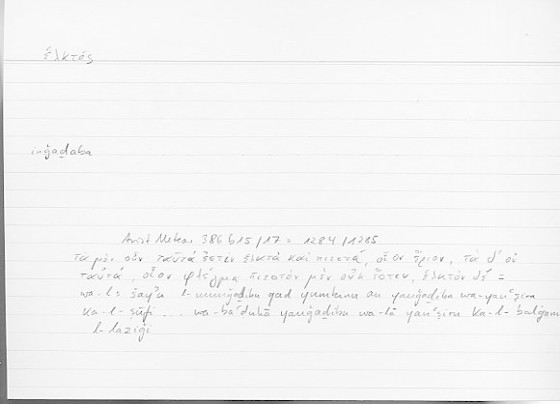 ἑλκτός
inǧaḏaba
Arist. Meteor. 386 b15/17 = 1284/1285
τὰ μὲν οὖν ταὐτά ἐστιν ἑλκτὰ καὶ πιεστά, οἷον ἔριον, τὰ δ' οὐ
ταὐτά, οἷον φλέγμα πιεστὸν μὲν οὐκ ἔστιν, ἑλκτὸν δέ =
šayʾu l-munǧaḏibu qad yumkinu an yanǧaḏiba wa-yanʿaṣira
ka-l-ṣūfi ... wa-baʿḍuhā yanǧaḏibu wa-lā yanʿaṣiru ka-l-balġami
l-laziǧi